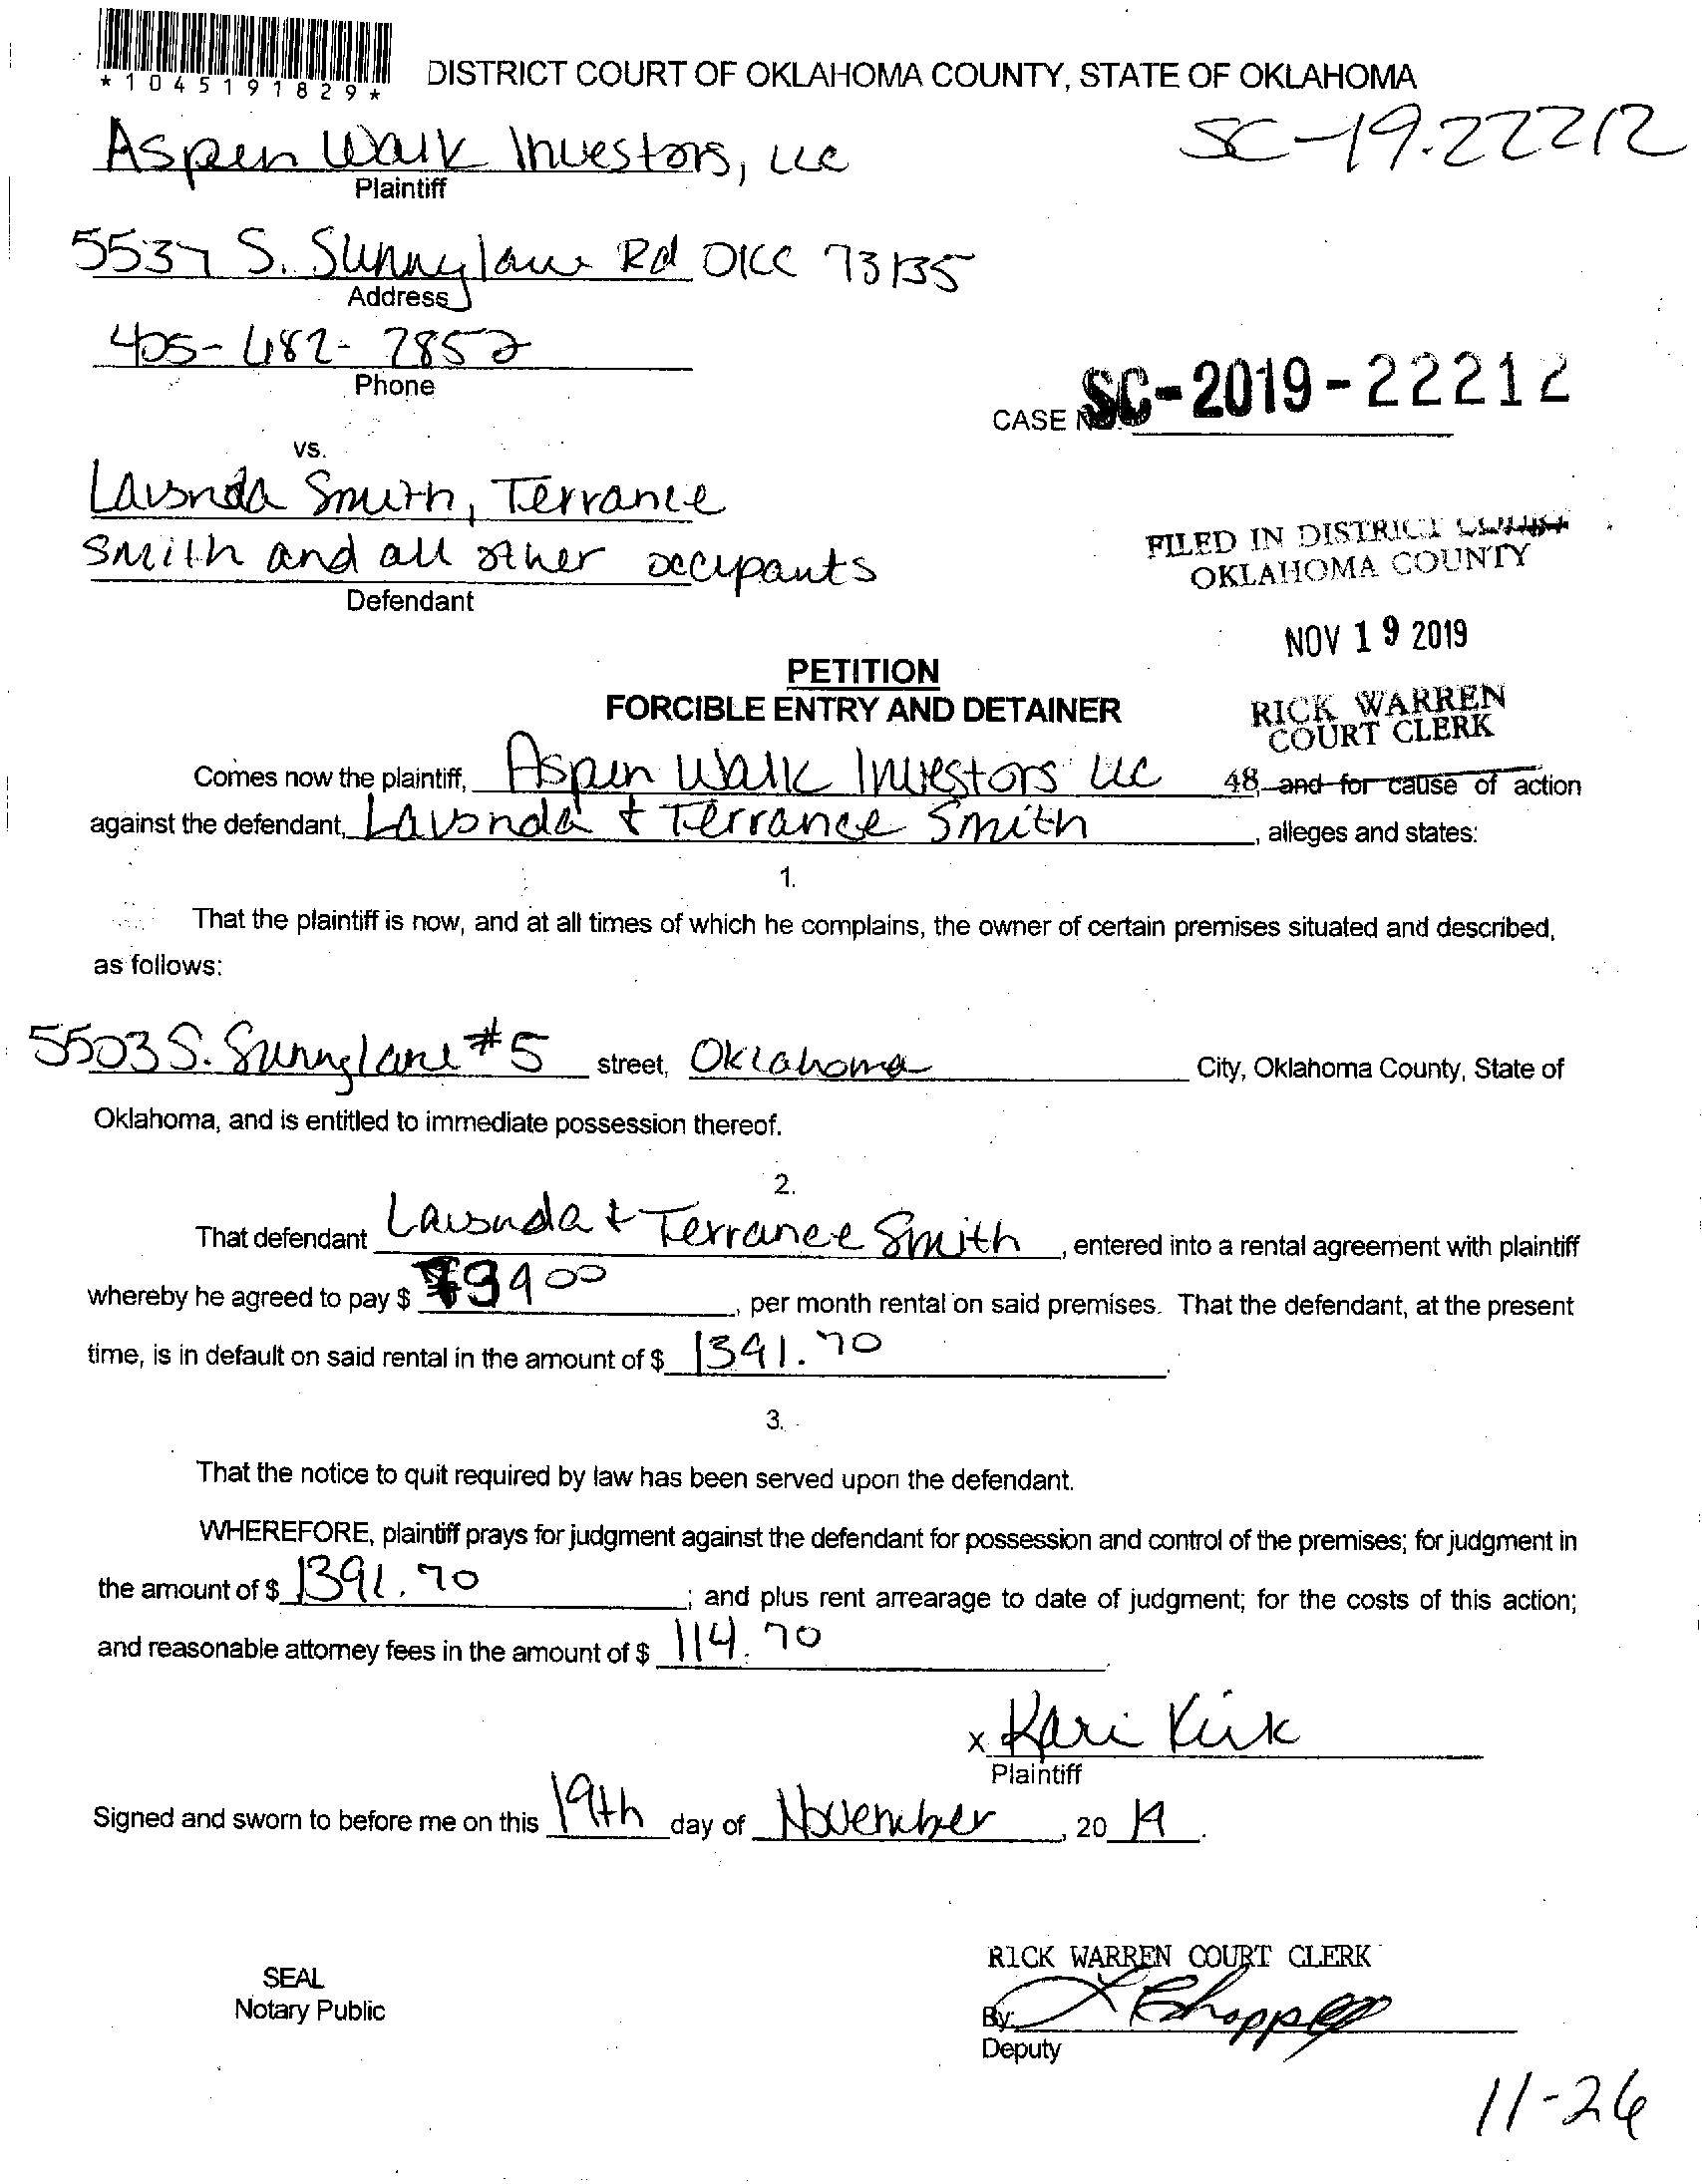 *1045191829*
DISTRICT COURT OF OKLAHOMA COUNTY, STATE OF OKLAHOMA
SC-19-22212
Aspen Walk Investors, LLC
Plaintiff
5537 S. Sunnylane Rd OKC 73135
Address
405-482-7852
Phone
CASE NO. SC-2019-22212
vs.
Lavonda Smith, Terrance
Smith and all other occupants
Defendant
FILED IN DISTRICT COURT
OKLAHOMA COUNTY
NOV 19 2019
RICK WARREN
COURT CLERK
PETITION
FORCIBLE ENTRY AND DETAINER
48
Comes now the plaintiff, Aspen Walk Investors LLC, and for cause of action
against the defendant, Lavonda & Terrance Smith, alleges and states:
1.
That the plaintiff is now, and at all times of which he complains, the owner of certain premises situated and described,
as follows:
5503 S. Sunnylane #5 street, Oklahoma City, Oklahoma County, State of
Oklahoma, and is entitled to immediate possession thereof.
2.
That defendant Lavonda & Terrance Smith, entered into a rental agreement with plaintiff
whereby he agreed to pay $ 739 00, per month rental on said premises. That the defendant, at the present
time, is in default on said rental in the amount of $ 1391.70.
3.
That the notice to quit required by law has been served upon the defendant.
WHEREFORE, plaintiff prays for judgment against the defendant for possession and control of the premises; for judgment in
the amount of $ 1391.70; and plus rent arrearage to date of judgment; for the costs of this action;
and reasonable attorney fees in the amount of $ 114.70
x Kari Kirk
Plaintiff
Signed and sworn to before me on this 19th day of November, 20 19.
SEAL
Notary Public
RICK WARREN COURT CLERK
By:
Deputy
11-26